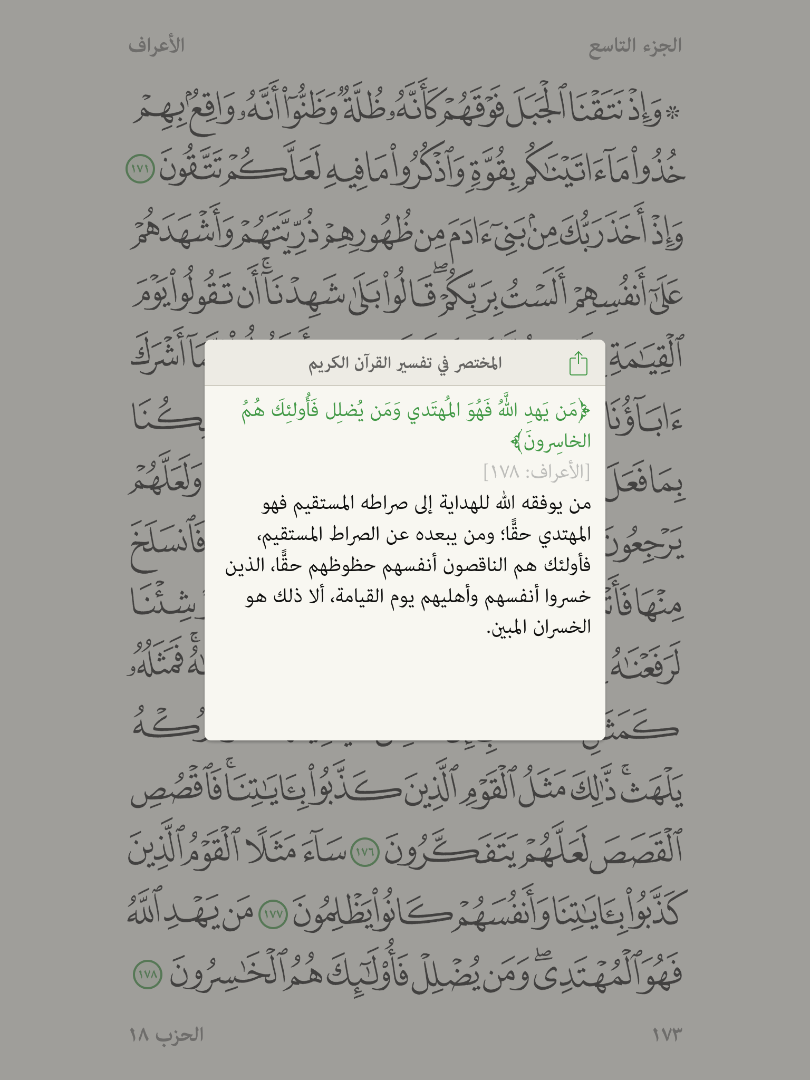 الجزء التاسع
الأعراف
۞ وَإِذْ نَتَقْنَا ٱلْجَبَلَ فَوْقَهُمْ كَأَنَّهُۥ ظُلَّةٌ وَظَنُّوٓا۟ أَنَّهُۥ وَاقِعٌۢ بِهِمْ
خُذُوا۟ مَآ ءَاتَيْنَٰكُم بِقُوَّةٍ وَٱذْكُرُوا۟ مَا فِيهِ لَعَلَّكُمْ تَتَّقُونَ ١٧١
وَإِذْ أَخَذَ رَبُّكَ مِنۢ بَنِىٓ ءَادَمَ مِن ظُهُورِهِمْ ذُرِّيَّتَهُمْ وَأَشْهَدَهُمْ
عَلَىٰٓ أَنفُسِهِمْ أَلَسْتُ بِرَبِّكُمْ ۖ قَالُوا۟ بَلَىٰ شَهِدْنَآ ۚ أَن تَقُولُوا۟ يَوْمَ
ٱلْقِيَٰمَةِ أَشْرَكَ
ءَابَآؤُنَا
بِمَا فَعَلَ وَلَعَلَّهُمْ
يَرْجِعُونَ فَٱنسَلَخَ
مِنْهَا شِئْنَا
لَرَفَعْنَٰهُ فَمَثَلُهُۥ
المختصر في تفسير القرآن الكريم
﴿مَن يَهدِ اللَّهُ فَهُوَ المُهتَدي وَمَن يُضلِل فَأُولئِكَ هُمُ
الخاسِرونَ﴾
[الأعراف: ١٧٨]
من يوفقه الله للهداية إلى صراطه المستقيم فهو
المهتدي حقًّا؛ ومن يبعده عن الصراط المستقيم،
فأولئك هم الناقصون أنفسهم حظوظهم حقًّا، الذين
خسروا أنفسهم وأهليهم يوم القيامة، ألا ذلك هو
الخسران المبين.
يَلْهَث ۚ ذَّٰلِكَ مَثَلُ ٱلْقَوْمِ ٱلَّذِينَ كَذَّبُوا۟ بِـَٔايَٰتِنَا ۚ فَٱقْصُصِ
ٱلْقَصَصَ لَعَلَّهُمْ يَتَفَكَّرُونَ ١٧٦ سَآءَ مَثَلًا ٱلْقَوْمُ ٱلَّذِينَ
كَذَّبُوا۟ بِـَٔايَٰتِنَا وَأَنفُسَهُمْ كَانُوا۟ يَظْلِمُونَ ١٧٧ مَن يَهْدِ ٱللَّهُ
فَهُوَ ٱلْمُهْتَدِى ۖ وَمَن يُضْلِلْ فَأُو۟لَٰٓئِكَ هُمُ ٱلْخَٰسِرُونَ ١٧٨
١٧٣
الحزب ١٨